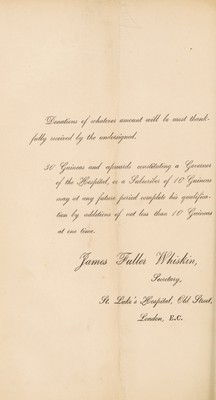 Donations of whatever amount will be most thank-
fully received by the undersigned.
50 Guineas and upwards constituting a Governor
of the Hospital, or a Subscriber of 10 Guineas
may at any future period complete his qualifica-
tion by additions of not less than 10 Guineas
at one time.
James Fuller Whiskin,
Secretary,
St. Luke's Hospital, Old Street,
London, E.C.